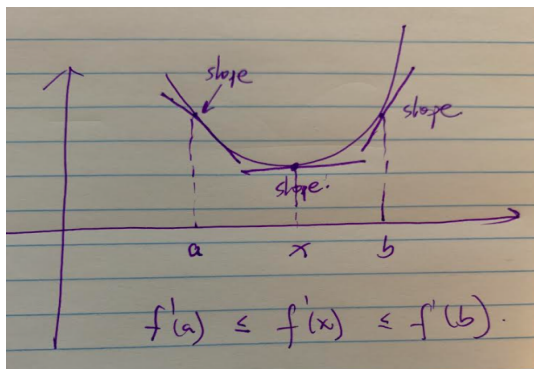 slope
slope
slope
a x b
f'(a) ≤ f'(x) ≤ f'(b).